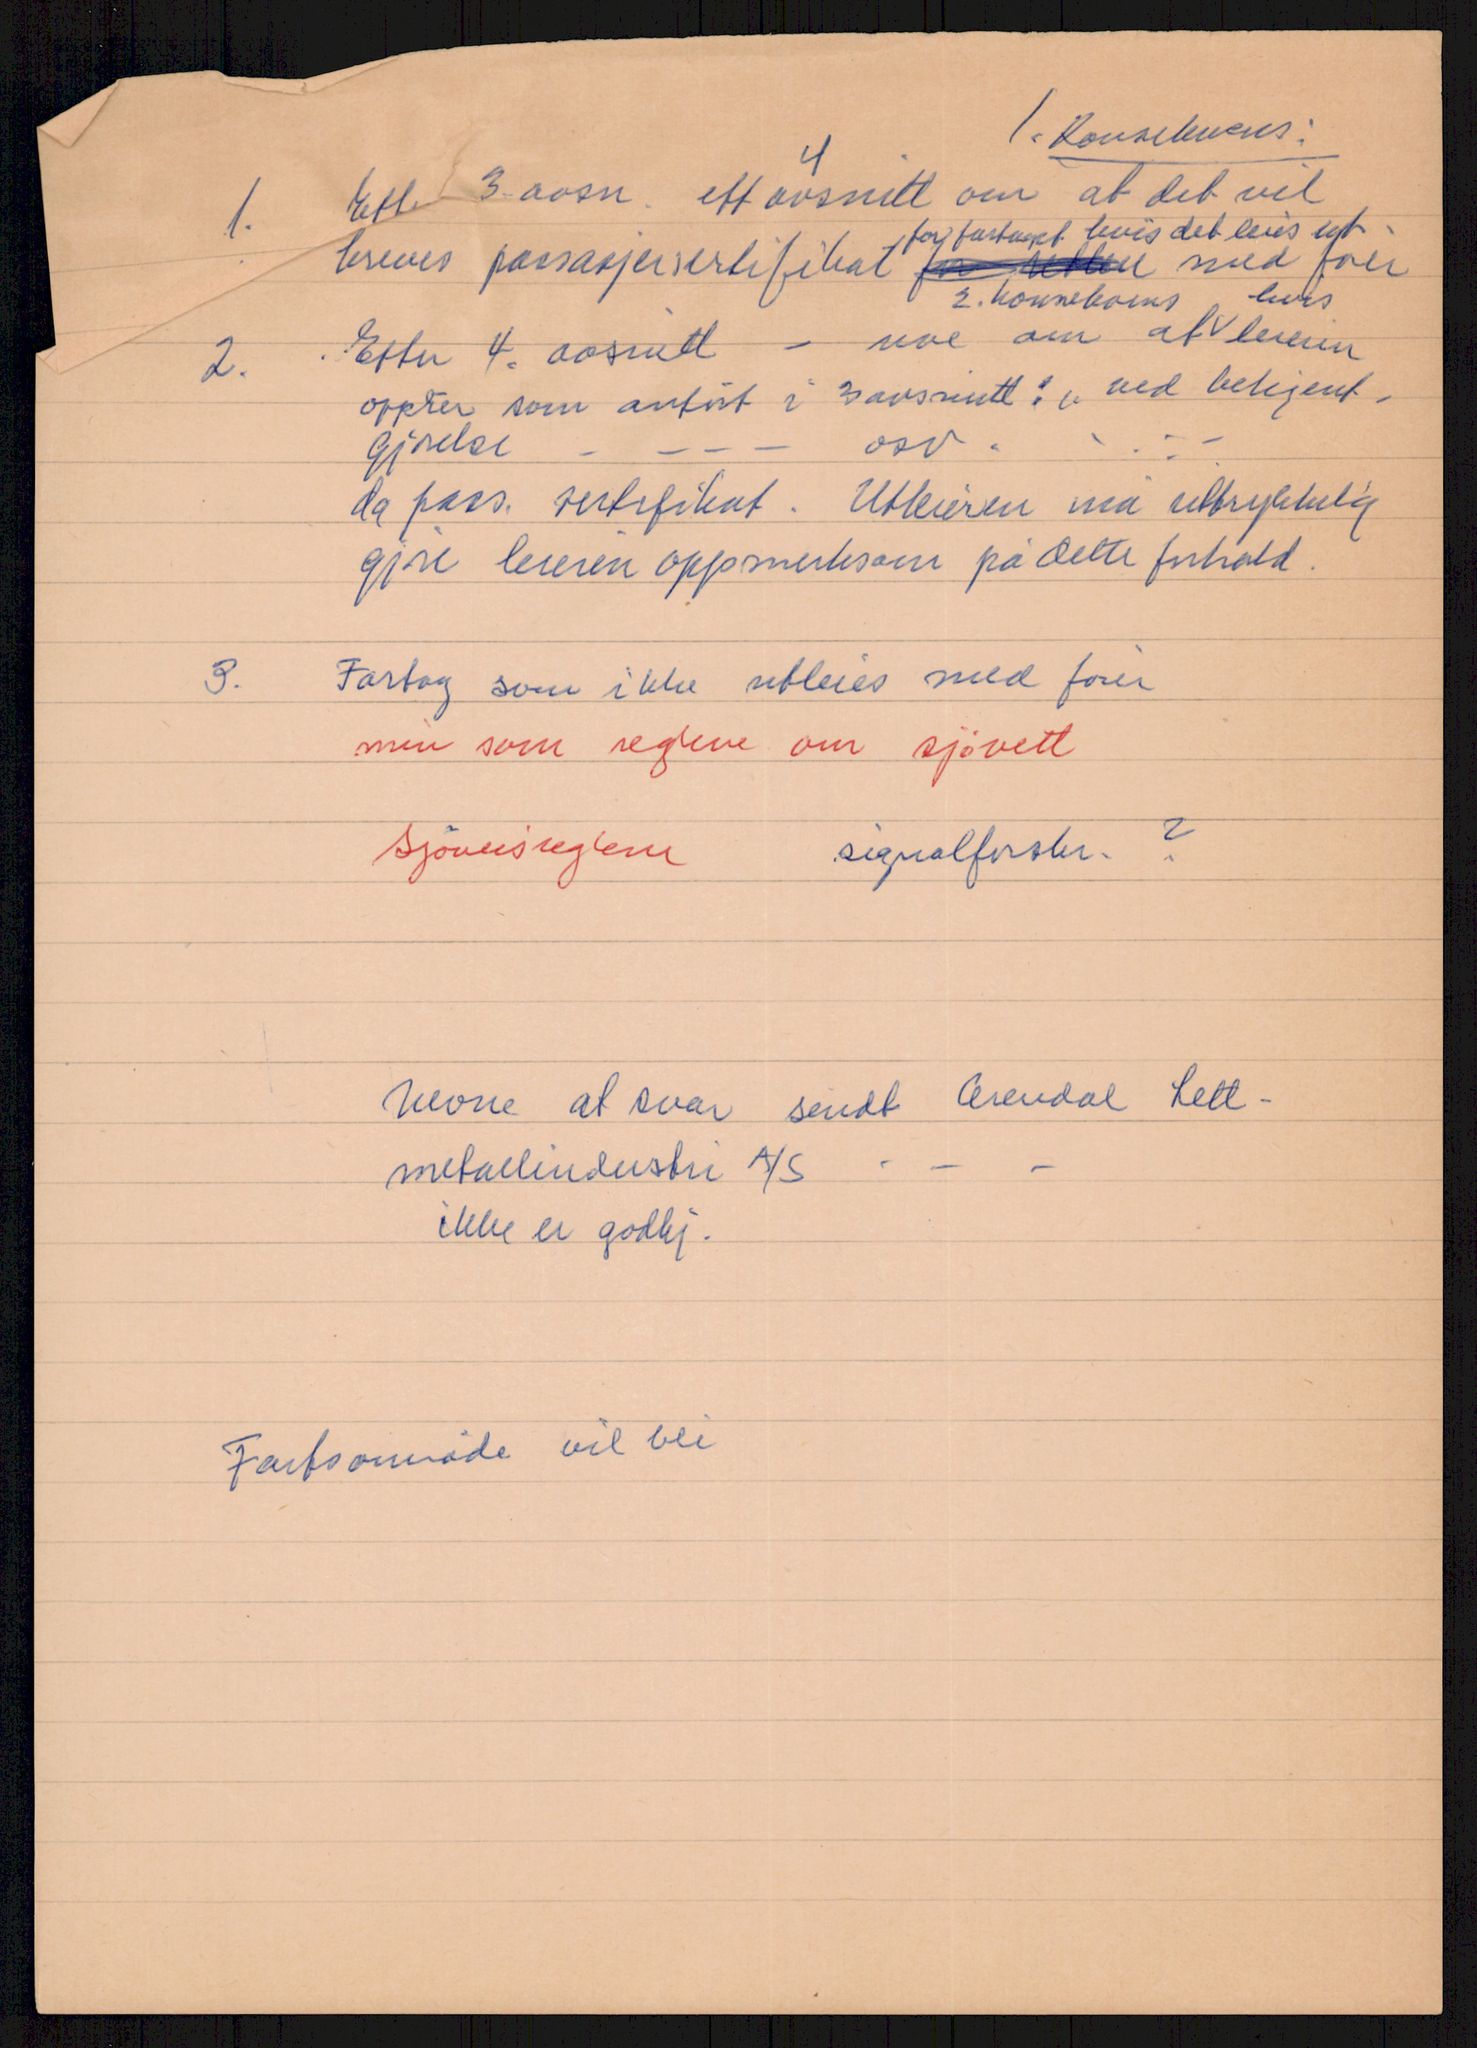 1. Konsekvens:
4
1. Ett. 3. avsn. ett avsnitt om at det vil
for fartøyet hvis det leies ut
kreves passasjersertifikat med fører
2. konsekvens hvis
2. Etter 4. avsnitt - noe om at leieren
opptrer som anført i 3 avsnitt: ved bekjent-
gjørelse - - - - osv.
da pass. sertifikat. Utleieren må uttrykkelig
gjøre leieren oppmerksom på dette forhold.
3. Fartøy som ikke utleies med fører
men som reglene om sjøvett
sjøveisreglene signalforskr. ?
Nevne at svar sendt Arendal Lett-
metallindustri A/S - - -
ikke er godkj.
Fartsområde vil bli